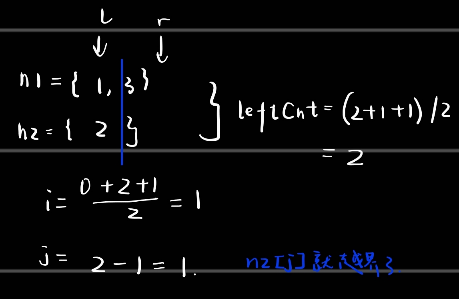 l r
n1 = { 1, 3 }
n2 = { 2 }
leftCnt = (2+1+1)/2
= 2
i = 0+2+1 / 2 = 1
j = 2-1 = 1.
n2[j]就越界了